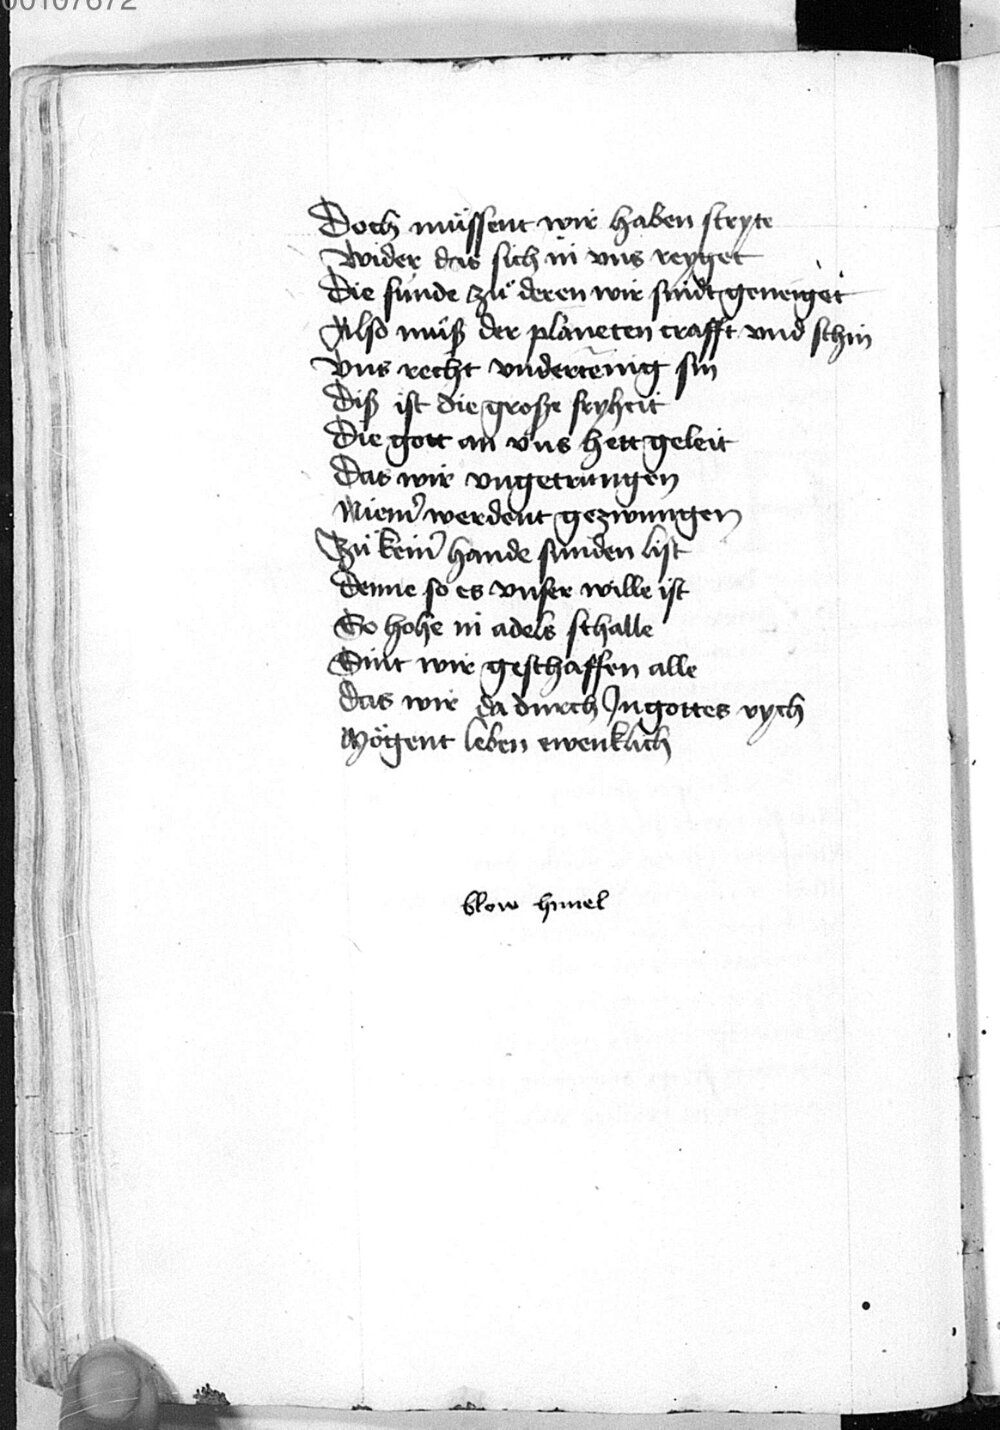 00107672
Doch müssent wir haben stryte
Wider das sich in vns reyget
Die sünde zů deren wir sindt geneiget
Also můß der planeten crafft vnd schin
Vns recht vndertenig sin
Diß ist die große fryheit
Die gott an vns hett geleit
Das wir vngetrungen
Niem̉ werdent gezwungen
Zů kein̉ hande sunden list
Denne so es vnser wille ist
So hohe in adels schalle
Sint wir geschaffen alle
Das wir da durch Jn gottes rych
Mögent leben ewenklich
blow himel